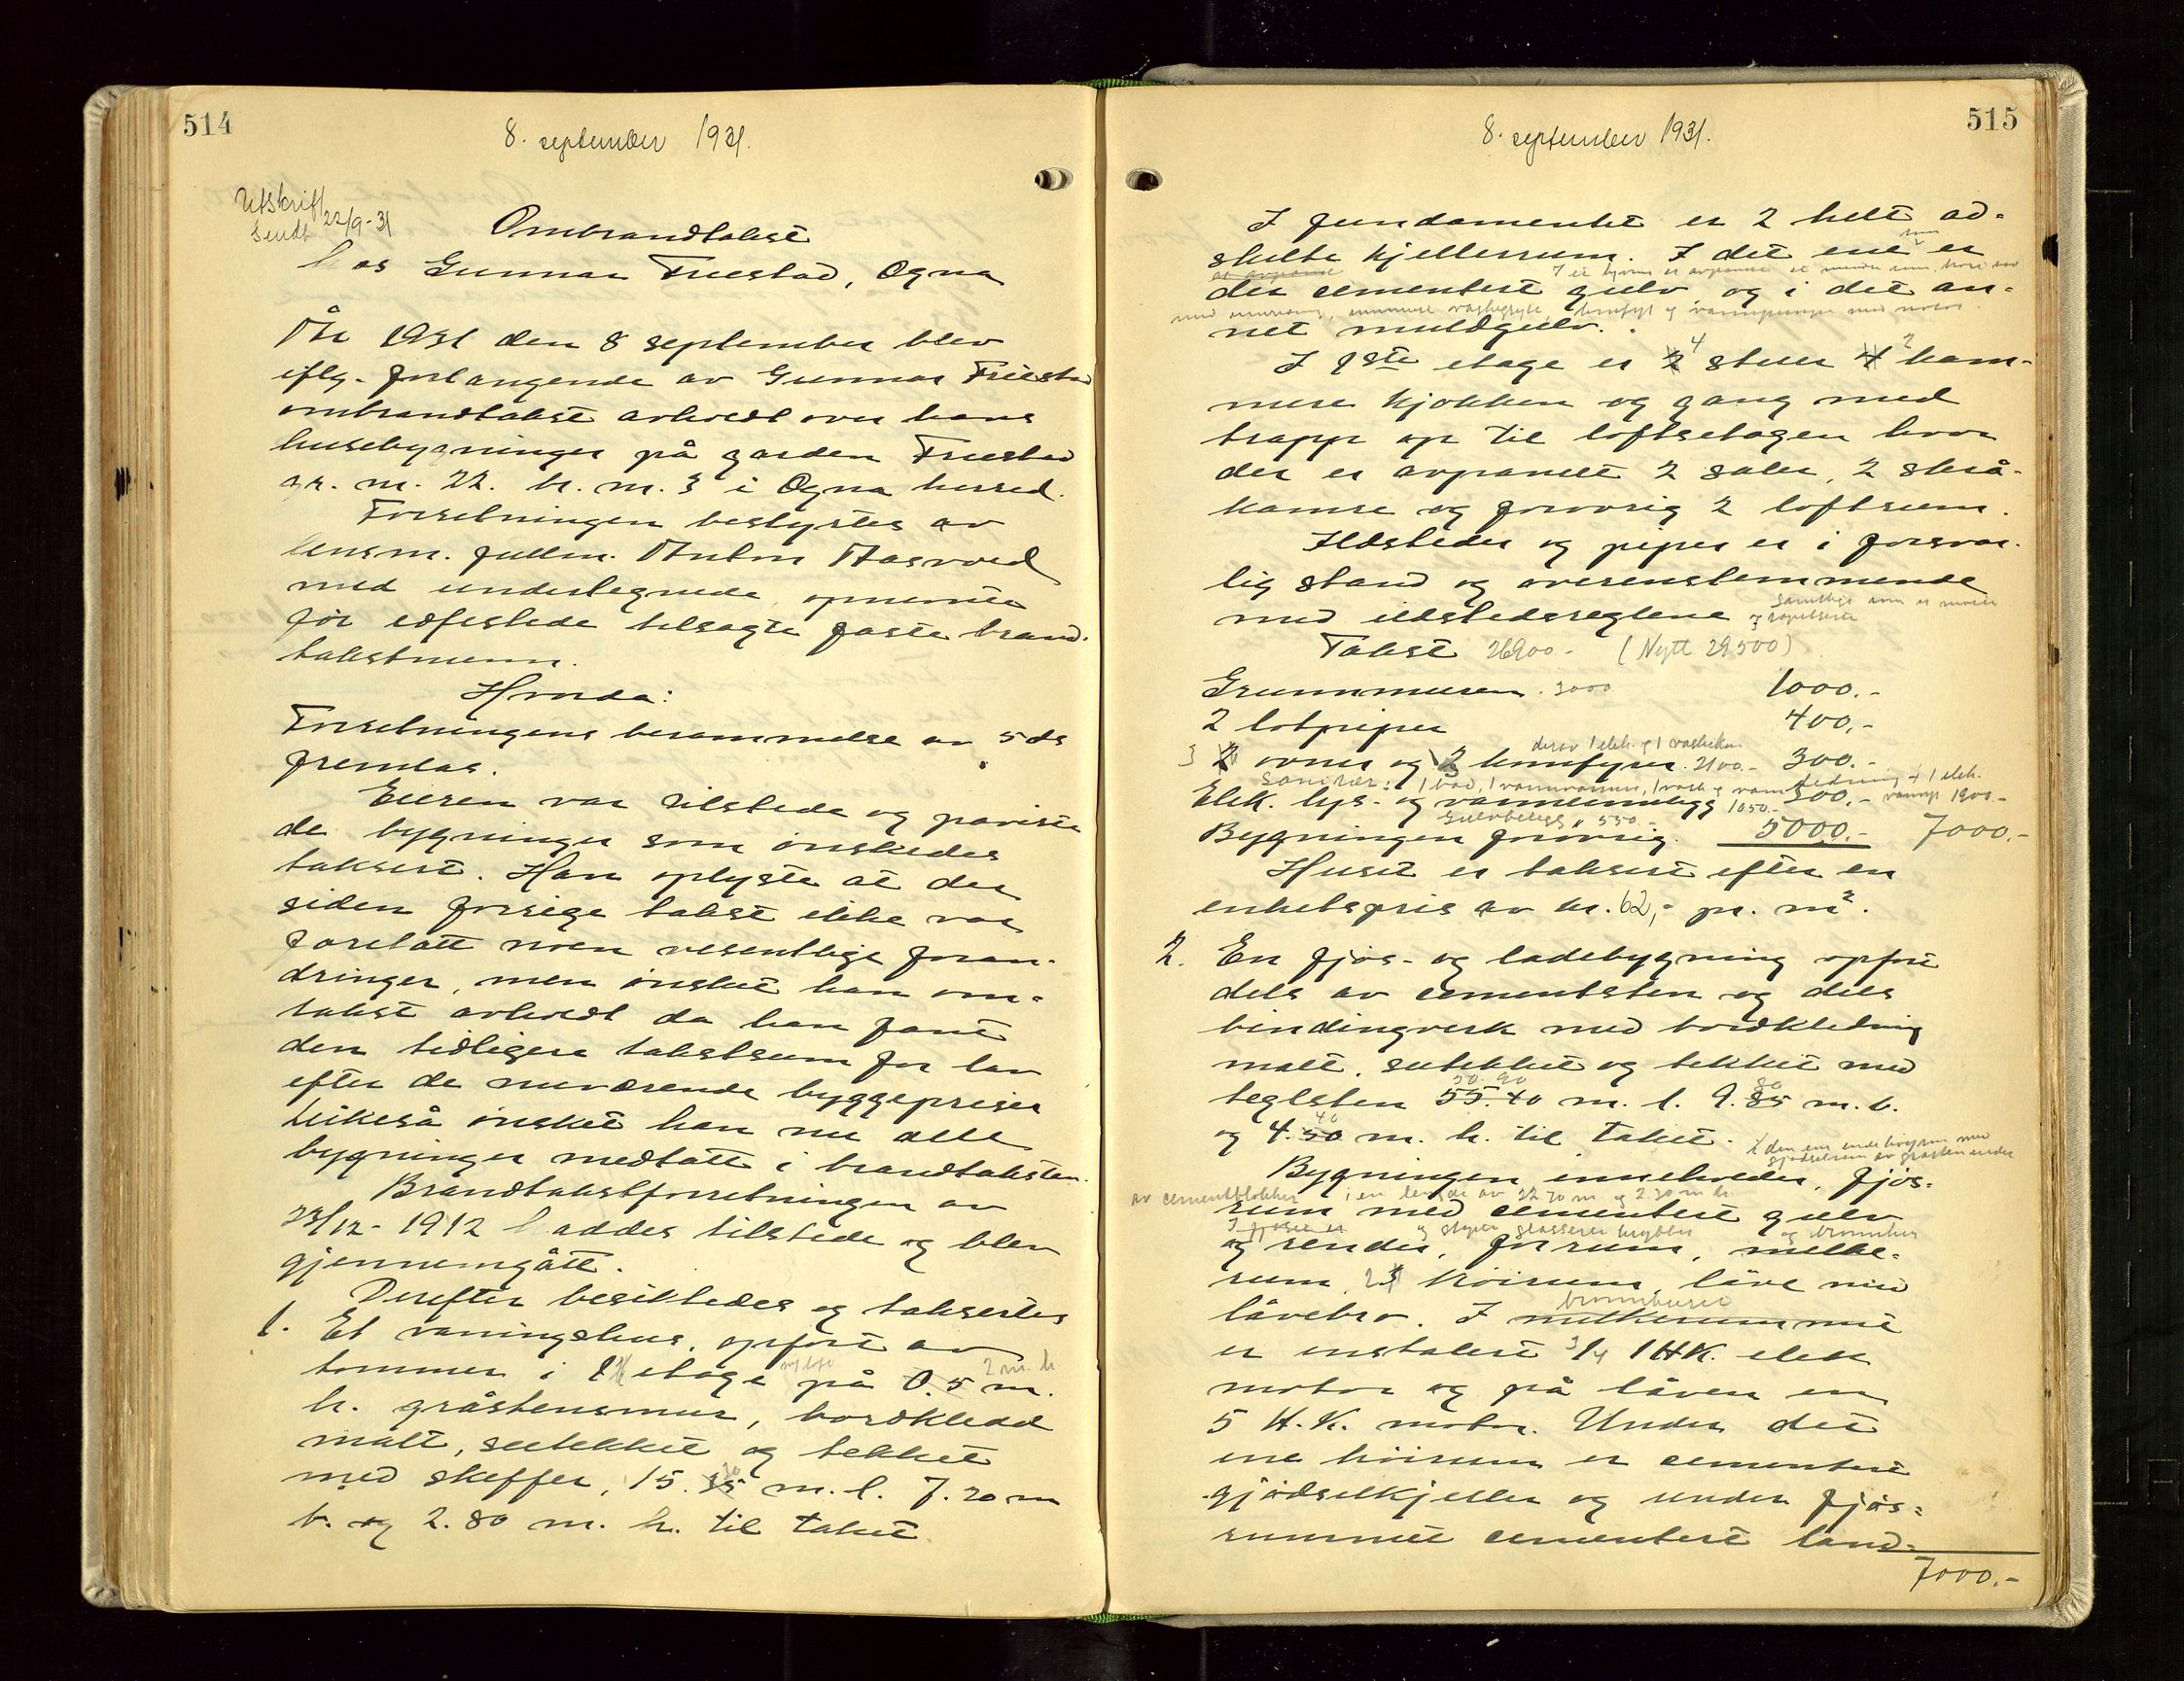 514
8. september 1931.
Utskrift
sendt 22/9-31
Ombrandtakst
hos Gunnar Fuestad, Ogna
År 1931 den 8 september blev
eflg. forlangende av Gunnar Fuestad
ombrandtakst avholdt over hans
husebygninger på garden Fuestad
gr. nr. 22. br. nr. 3 i Ogna herred.
Forretningen bestyrtes av
lensm. fullm. Anton Aasvold
med undertegnede opnevnte
før edfestede tilsagte faste brand-
takstmenn.
Hvorda:
Forretningens berammelse av 5 ds
fremlas.
Eieren var tilstede og paviste
de bygninger som ønskedes
taksert. Han oplyste at der
siden forrige takst ikke var
foretatt noen vesentlige foran-
dringer, men ønsket han om-
takst avholdt da han fant
den tidligere takstsum for lav
efter de nuværende byggepriser
likeså ønsket han nu alle
bygninger medtatt i brandtaksten.
Brandtakstforretningen av
23/12-1912 haddes tilstede og blev
gjennemgått.
Derefter besiktedes og taksertes
1. Et våningshus, opført av
tommer i 1 etage på 0.5 m. 2 m. h
h. gråstensmur, bordkledd
malt, sutekket og tekket
med skeffer, 15.35 m. l. 7.20 m
b. og 2.80 m. h. til taket.
515
8. september 1931.
I fundamentet er 2 helt ad-
skelte kjellerrum. I det ene er
der cementert gulv og i det an-
net muldgulv.
I 1ste etage er 2 4 stuer 4 2 kam-
mere kjøkken og gang med
trapp op til loftsetagen hvor
der er avpanelt 2 saler, 2 skrå-
kamre og forøvrig 2 loftsrum.
Ildsteder og piper er i forsvar-
lig stand og overenstemmende
med ildstedsreglene
Takst 26900.- (Nytt 29500)
Grunnmuren 3000 1000.-
2 lotpiper 400,-
3 2 ovner og 2 3 komfyrer 2100.- 300.-
derav 1 elek. og 1 vaskekom
sanitær: 1 bad, 1 vannvarmer, 1 vask og vannledning + 1 elek.
Elek. lys- og varmeinnlegg 1050.- 300,- 1900.-
Gulvbelegg 550.-
Bygningen forøvrig. 5000.- 7000.-
Huset er taksert efter en
enhetspris av kr. 62,- pr. m².
2. En fjøs- og ladebygning opført
dels av cementsten og dels
bindingverk med bordkledning
malt, sutekket og tekket med
50.90 80
teglsten 55.40 m. l. 9.85 m. b.
40
og 4.50 m. h. til taket.
Bygningen inneholder, fjøs-
av cementblokker i en lengde av 22.70 m og 2.30 m h.
rum med cementert gulv
og render, forrum, melke-
rum, 2 høirum, låve med
brønnhuset
låvebro. I melkerummet
er installert 3/4 1 HK. elek
motor og på låven en
5 H.K. motor. Under det
ene høirum er cementert
gjødselkjeller og under fjøs-
rummet cementert land-
7000.-